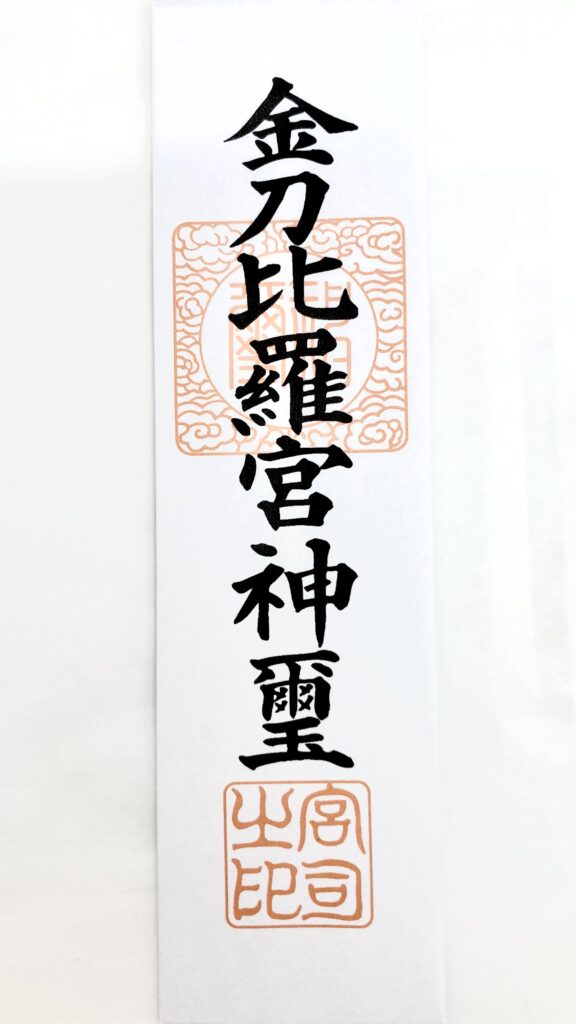 金刀比羅宮神璽
宮司之印